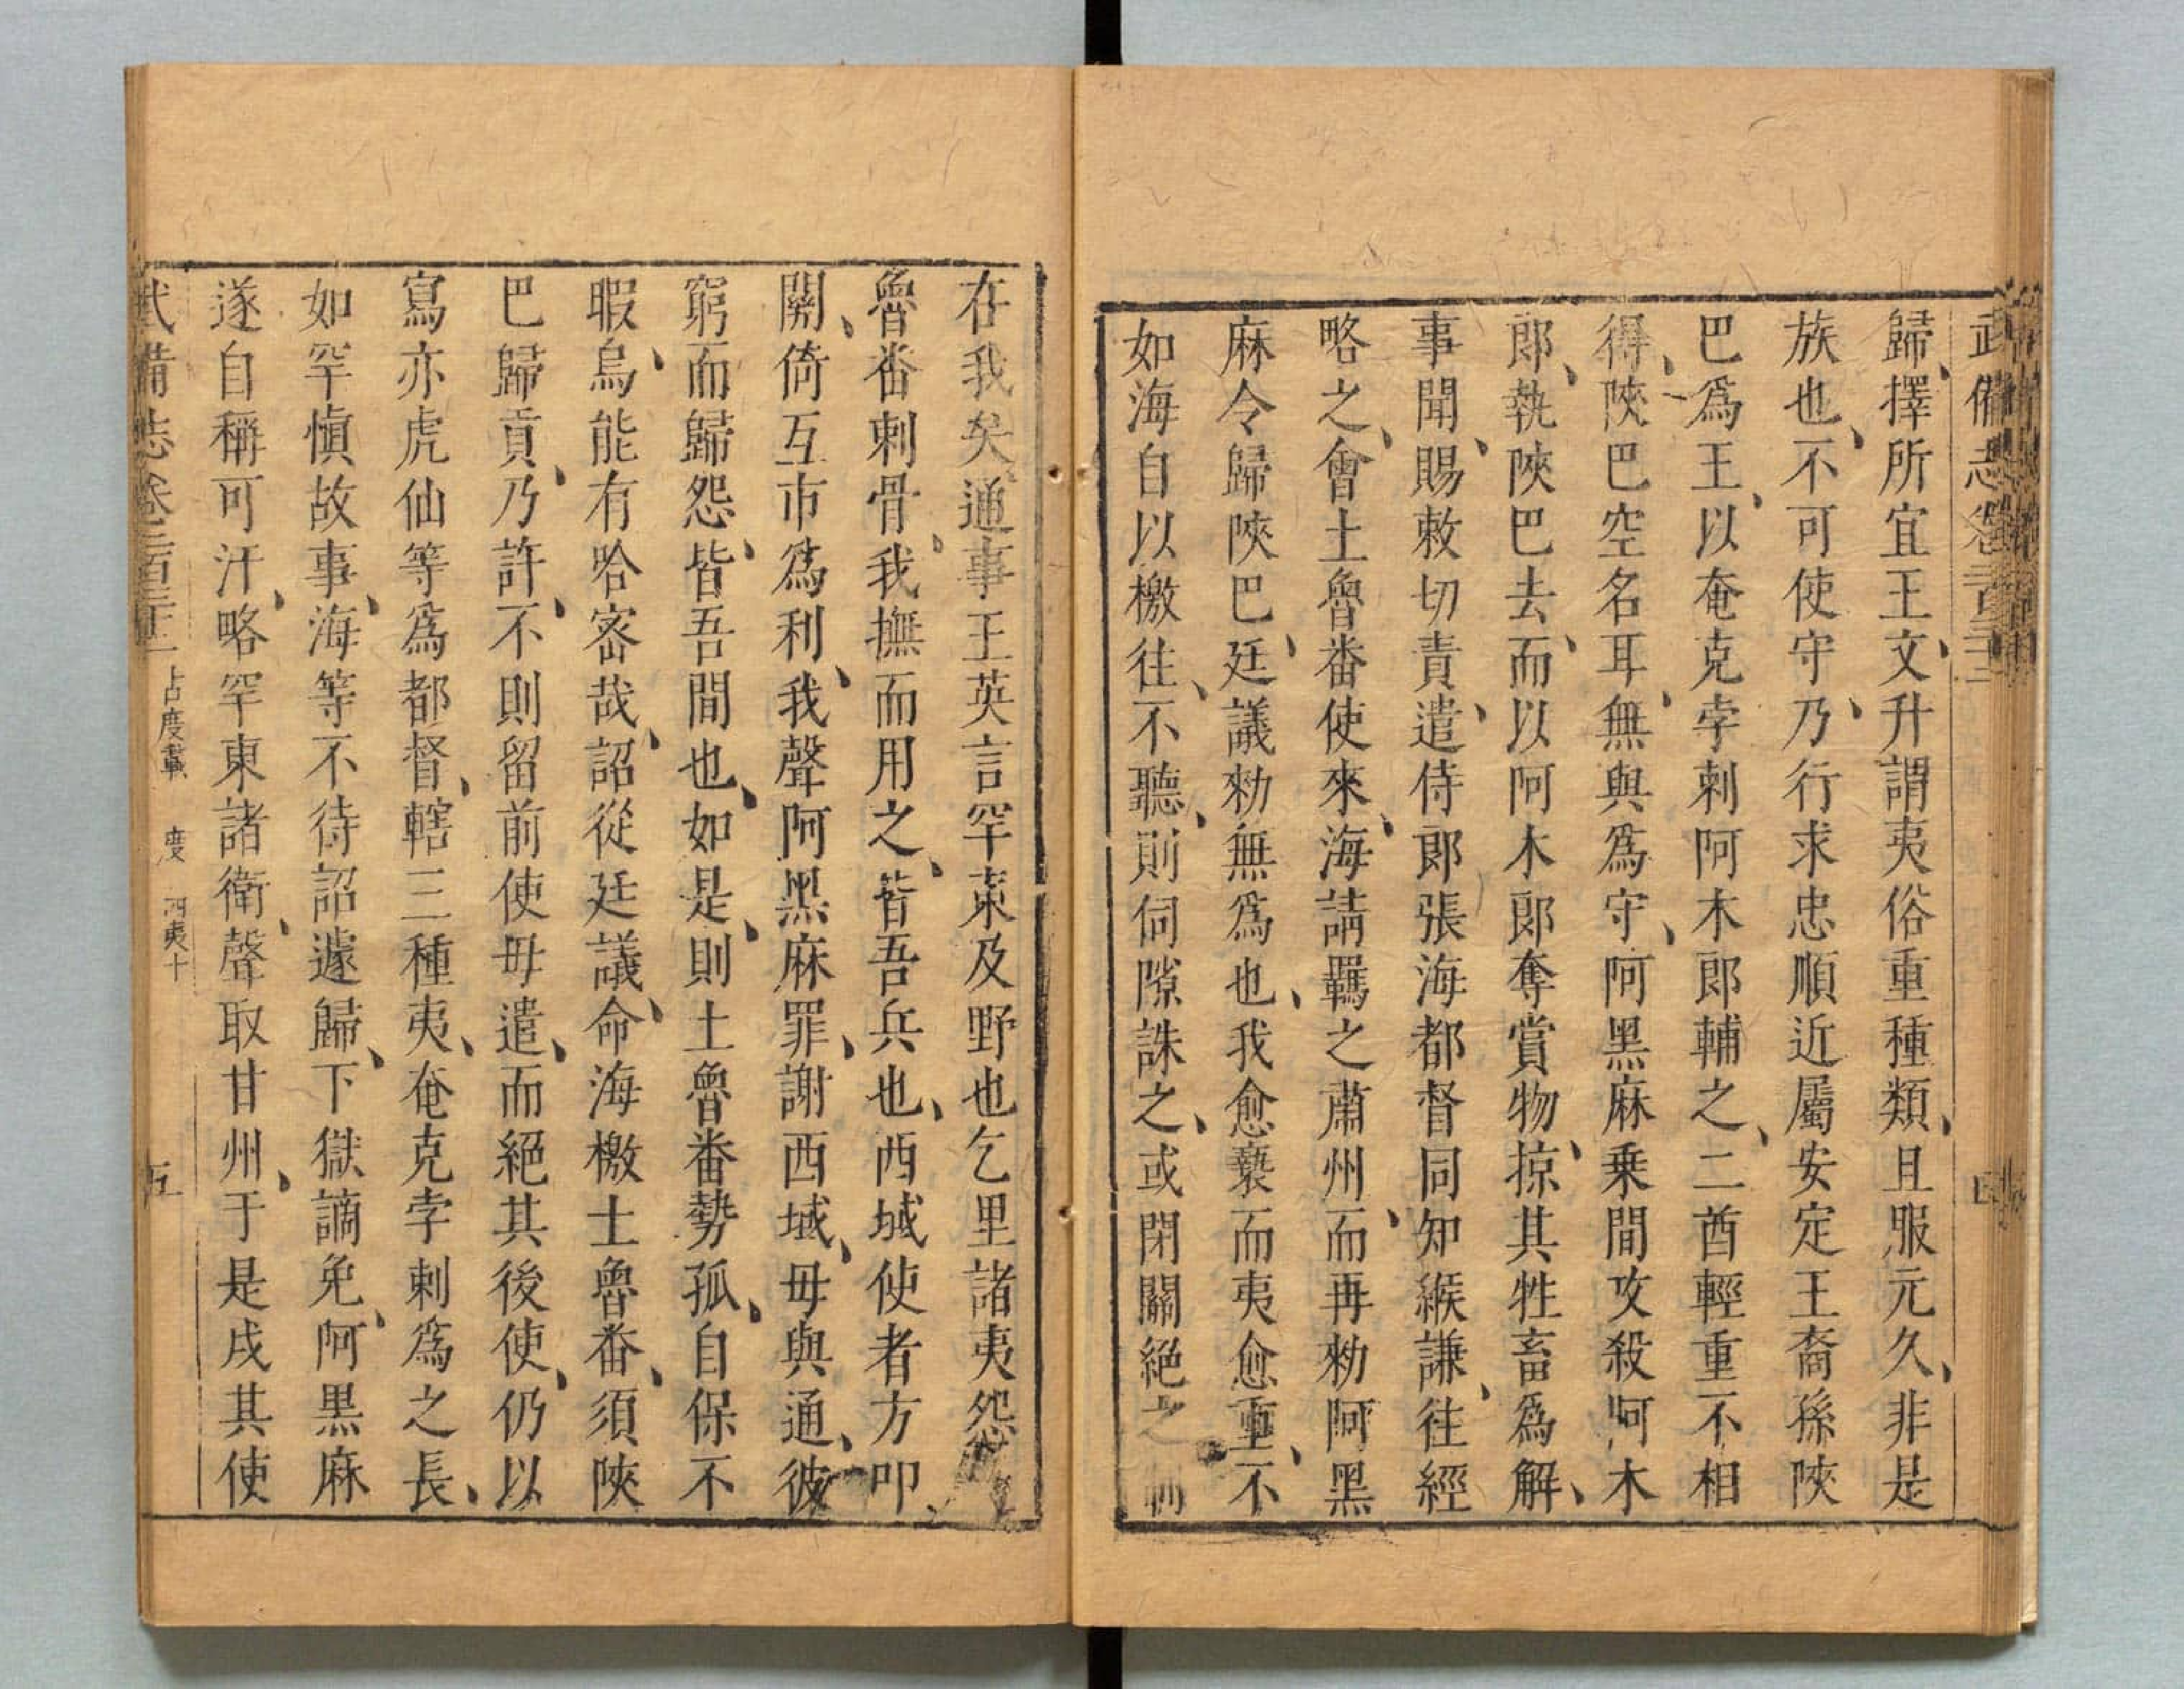 武備志卷二百二十二
歸、擇所宜王、文升謂夷俗重種類、且服元久、非是
族也、不可使守、乃行求忠順近屬安定王裔孫陝
巴爲王、以奄克孛剌阿木郎輔之、二酋輕重不相
得、陝巴空名耳、無與爲守、阿黑麻乗間攻殺阿木
郎、執陝巴去、而以阿木郎奪賞物、掠其牲畜爲解、
事聞、賜敕切責、遣侍郎張海都督同知緱謙、往經
略之、會土魯番使來、海請羈之肅州、而再勑阿黑
麻令歸陝巴、廷議勑無爲也、我愈褻而夷愈重、不
如海自以檄往、不聽、則伺隙誅之、或閉關絕之
在我矣通事王英言罕東及野也乞里諸夷怨
魯番刺骨、我撫而用之、皆吾兵也、西域使者方叩
關、倚互市爲利、我聲阿黑麻罪、謝西域、毋與通、彼
窮而歸怨、皆吾間也、如是、則土魯番勢孤、自保不
暇、烏能有哈密哉、詔從廷議、命海檄土魯番、須陝
巴歸貢、乃許、不則留前使毋遣、而絕其後使、仍以
寫亦虎仙等爲都督、轄三種夷、奄克孛剌爲之長、
如罕慎故事、海等不待詔遽歸、下獄謫免、阿黑麻
遂自稱可汗、略罕東諸衛、聲取甘州、于是戍其使
武備志卷二百二十二 占度載 度 四夷十 五